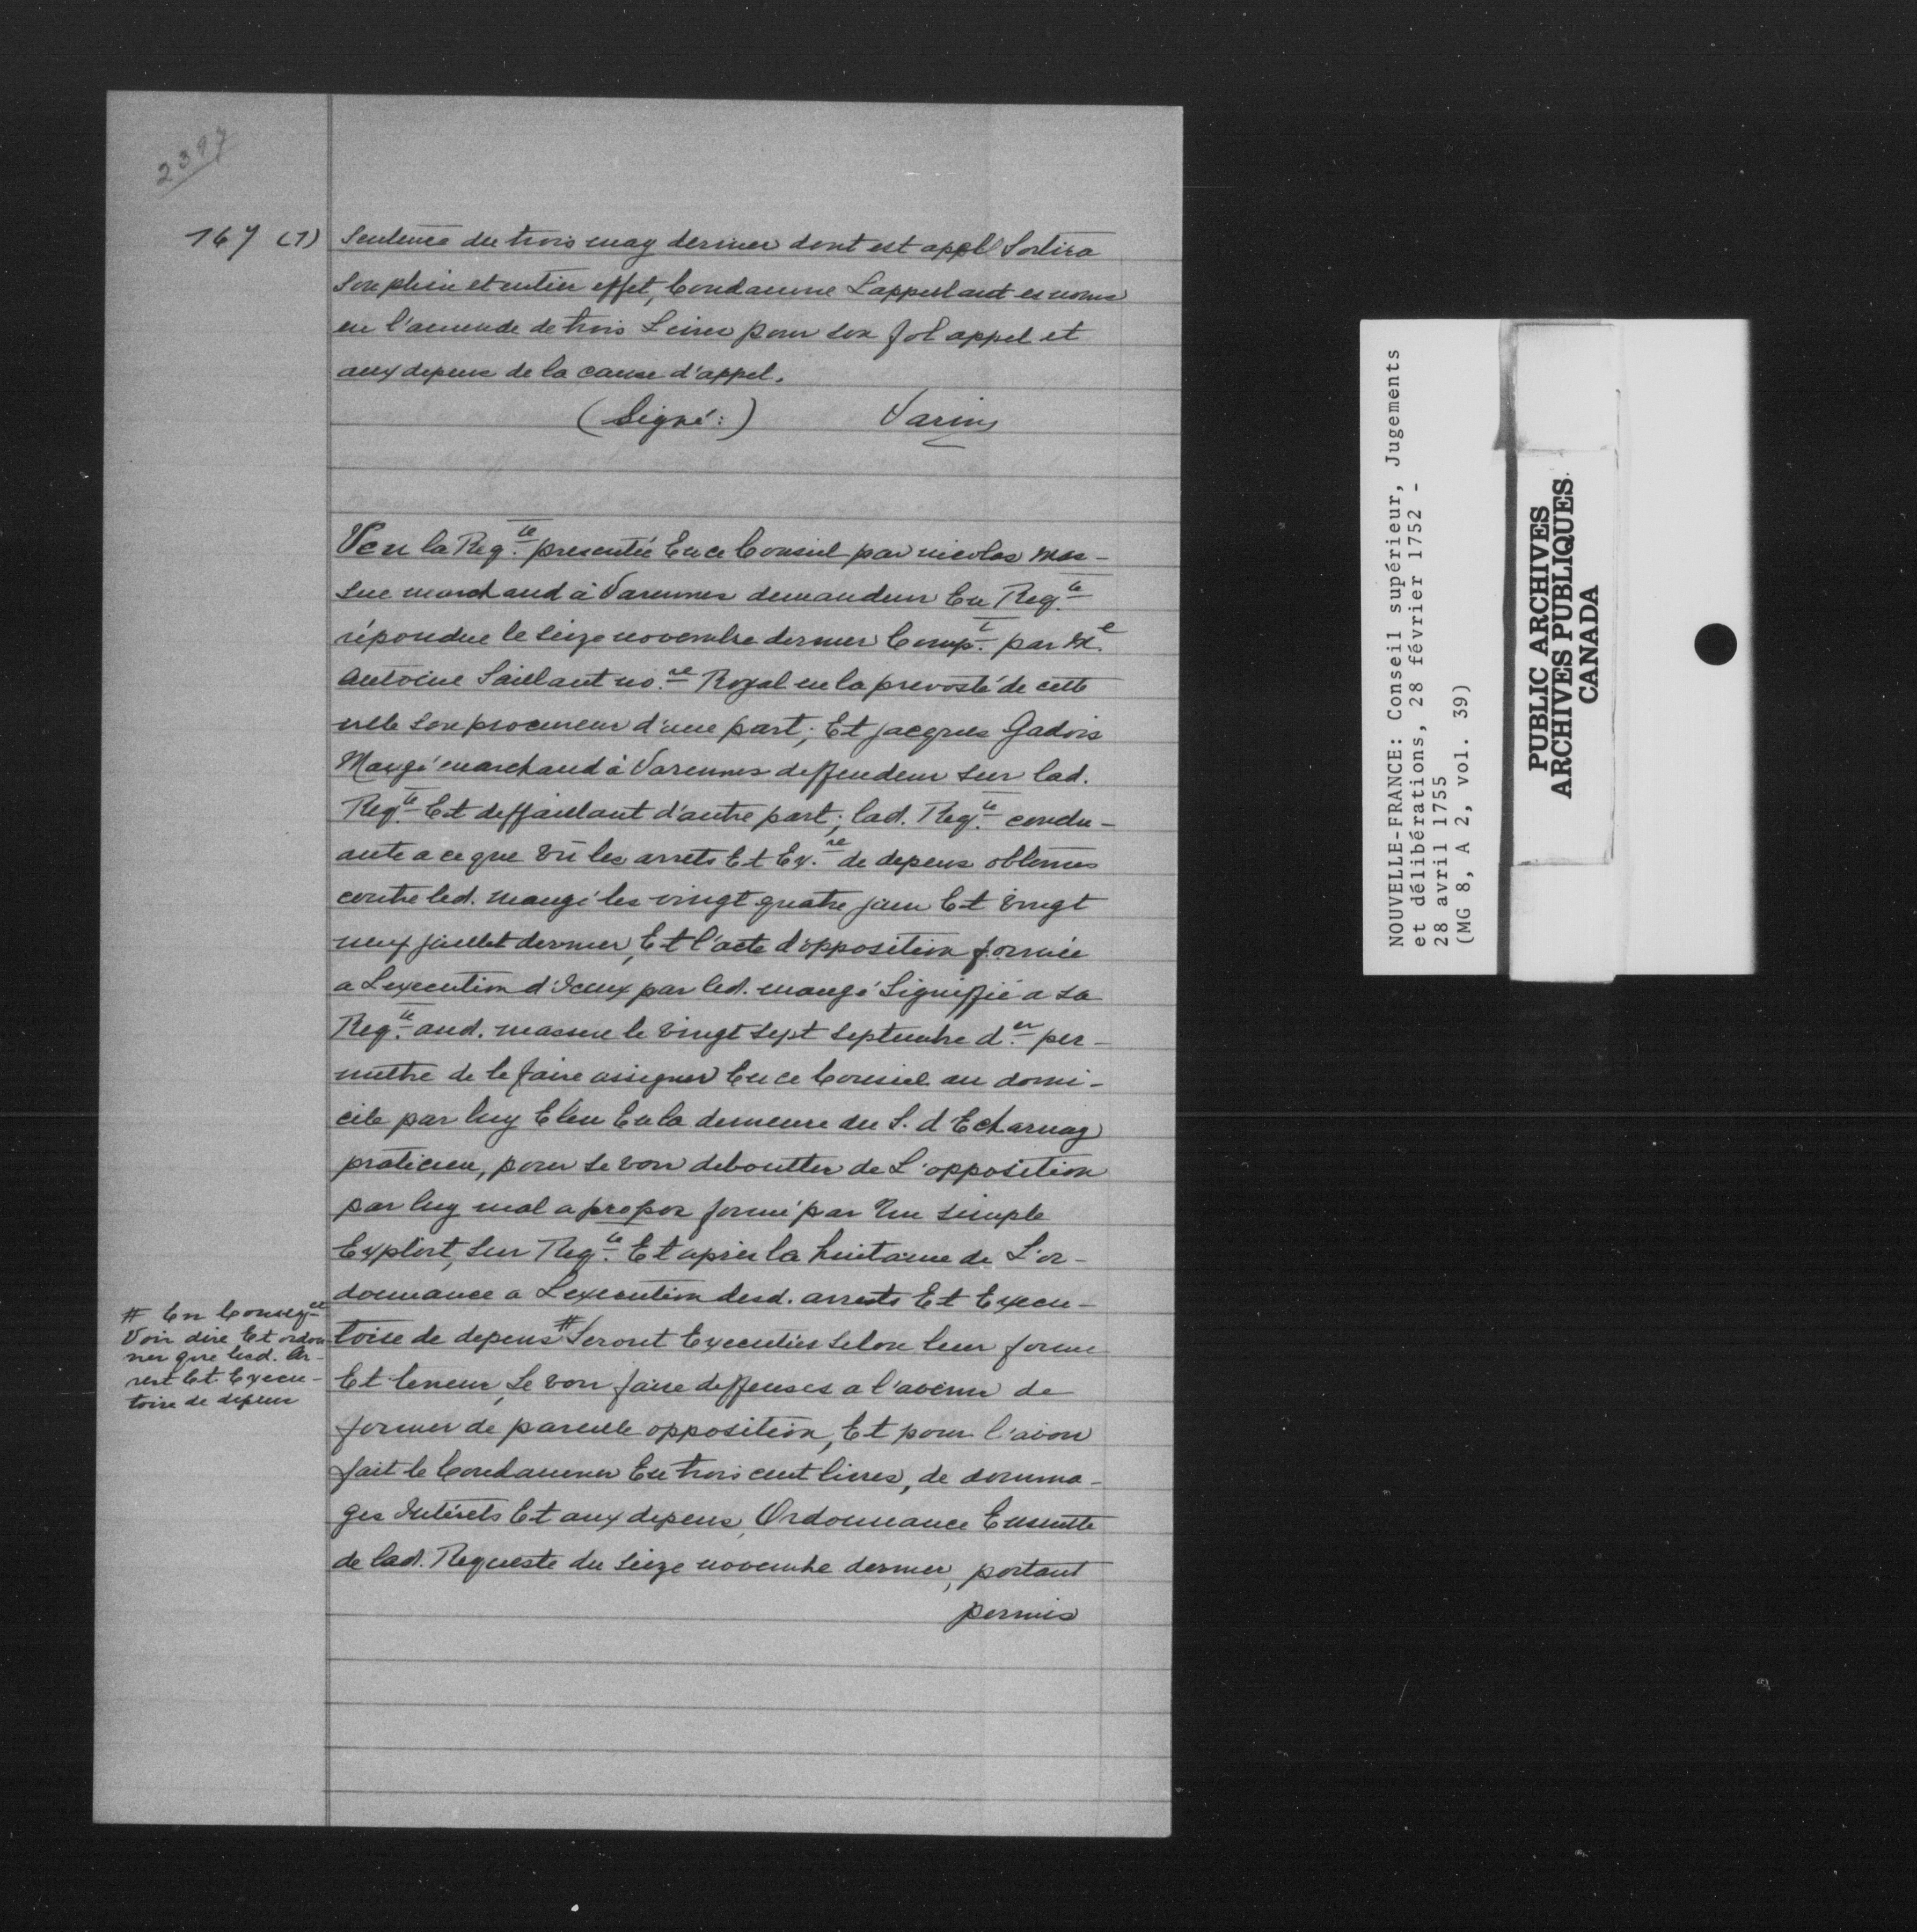 2397
167 (1)
Sentence du trois may dernier dont est appel Sortira
Son plein et entier effet, Condamne L'appellant es noms
en l'amende de trois Livres pour son fol appel et
aux depens de la cause d'appel.
(Signé:) Varin
Veu la Req.te presentée En ce Conseil par nicolas Mas-
sue marchand à Varennes demandeur En Req.te
répondue le seize novembre dernier Comp.t par M.e
Antoine Saillant no.re Royal en la prevosté de cette
ville son procureur d'une part; Et jacques Gadois
Maugé marchand à Varennes deffendeur sur lad.
Req.te Et deffaillant d'autre part; lad. Req.te conclu-
ante a ce que Vû les arrets Et Ex.re de depens obtenus
contre led. maugé les vingt quatre juin Et Vingt
neuf juillet dernier, Et l'acte d'opposition formée
a L'execution d'Iceux par led. maugé Signiffié a sa
Req.te aud. massue le Vingt Sept Septembre d.er per-
mettre de le faire assigner En ce Conseil au domi-
cile par luy Eleu En la demeure du S. d'Echarnay
praticien, pour se voir deboutter de L'opposition
par luy mal a propos formé par Un simple
Exploit, Sur Req.te Et après la huitaine de L'or-
donnance a L'execution desd. arrests Et Execu-
toire de depens # Seront Executées Selon leur forme
Et teneur, Se voir faire deffenses a l'avenir de
former de pareille opposition, Et pour l'avoir
fait le Condamner En trois cent livres, de domma-
ges Intérets Et aux depens, Ordonnance Ensuitte
de lad. Requeste du Seize novembre dernier, portant
permis
# En Conseq.ce
Voir dire Et ordon
ner que lesd. Ar-
rest Et Execu-
toire de depens
NOUVELLE-FRANCE: Conseil supérieur, Jugements
et délibérations, 28 février 1752 -
28 avril 1755
(MG 8, A 2, vol. 39)
PUBLIC ARCHIVES
ARCHIVES PUBLIQUES
CANADA